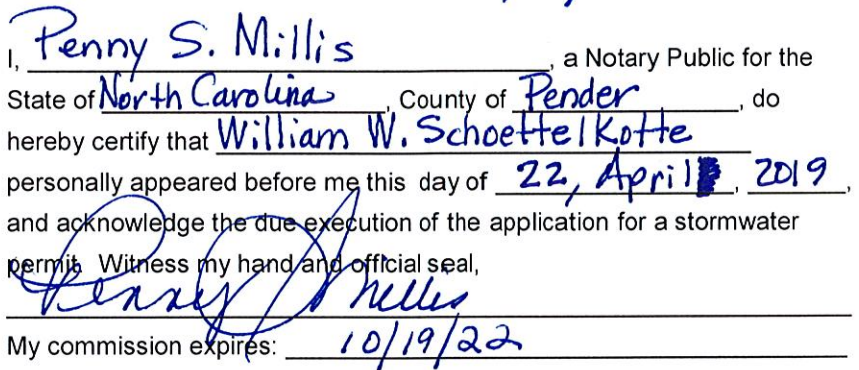 I, Penny S. Millis, a Notary Public for the
State of North Carolina, County of Pender, do
hereby certify that William W. Schoettelkotte
personally appeared before me this day of 22, April, 2019,
and acknowledge the due execution of the application for a stormwater
permit. Witness my hand and official seal,
Penny S Millis
My commission expires: 10/19/22